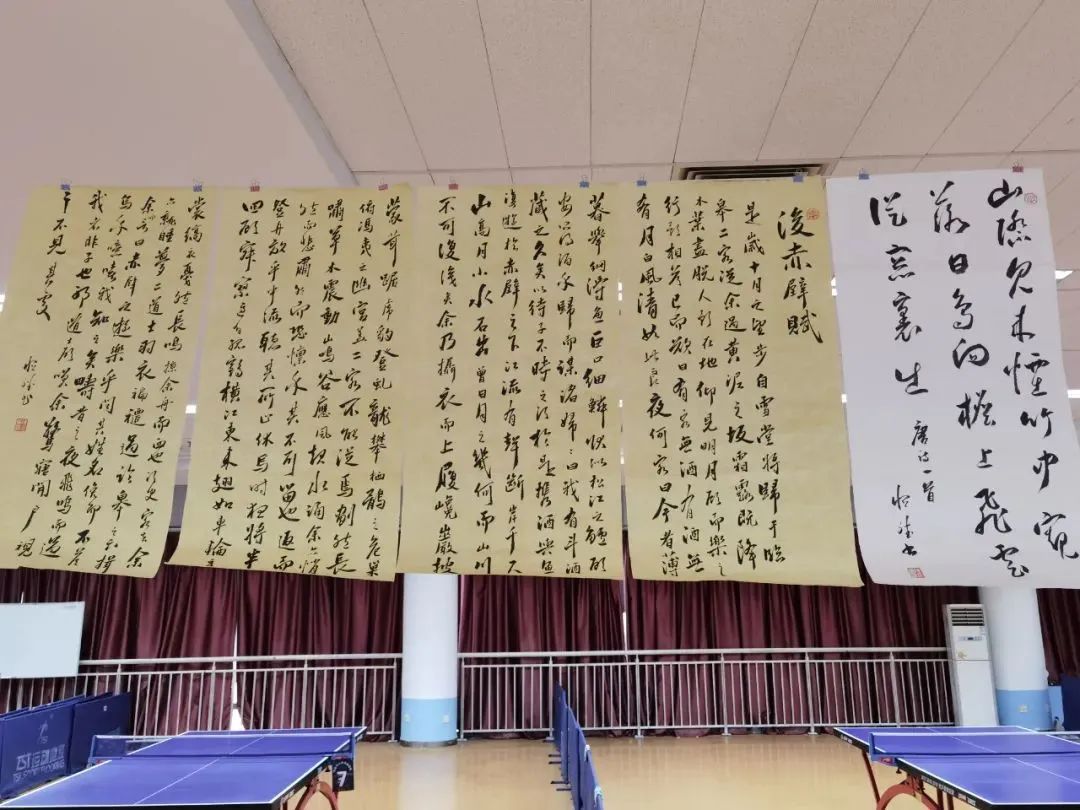 山際见来煙竹中窺
落日鳥向檐上飛雲
從窓裏出
唐诗一首
後赤壁賦
是歲十月之望步自雪堂將歸于臨
皋二客從余過黃泥之坂霜露既降
木葉盡脫人影在地仰見明月顧而樂之
行歌相答已而歎曰有客無酒有酒無
肴月白風清如此良夜何客曰今者薄
暮舉網得魚巨口細鱗狀似松江之鱸顧
安所得酒乎歸而謀諸婦婦曰我有斗酒
藏之久矣以待子不時之須於是攜酒與魚
復遊於赤壁之下江流有聲斷岸千尺
山高月小水石出曾日月之幾何而山川
不可復識矣余乃攝衣而上履巉巖披
蒙茸踞虎豹登虬龍攀栖鶻之危巢
俯馮夷之幽宮蓋二客不能從焉劃然長
嘯草木震動山鳴谷應風起水涌余亦悄
然而悲肅然而恐懍乎其不可留也返而
登舟放乎中流聽其所止休焉時夜將半
四顧寂寥適有孤鶴橫江東來翅如車輪玄
裳縞衣戛然長鳴掠余舟而西也須臾客去余
亦就睡夢二道士羽衣蹁躚過臨皋之下揖
余言曰赤壁之遊樂乎問其姓名俛而不答
烏乎噫嘻我知之矣疇昔之夜飛鳴而過
我者非子也邪道士顧笑余驚寤開戶視
之不見其處